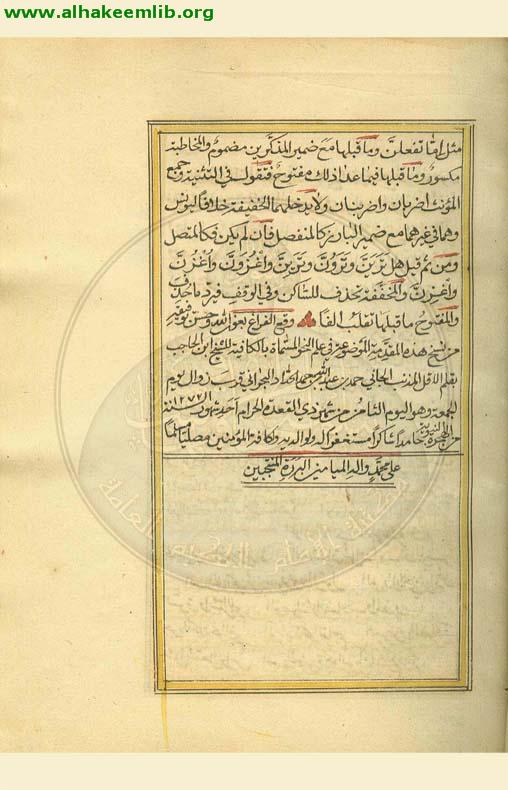 www.alhakeemlib.org
مثل اما تفعلن وما قبلها مع ضمير المذكرين مضموم والمخاطبة
مكسور وما قبلها فيما عدا ذلك مفتوح فتقول في التثنية وجمع
المؤنث اضربان واضربنان ولا يدخلهما الخفيفة خلافا ليونس
وهما في غيرهما مع ضمير البارز كالمنفصل فان لم يكن فكالمتصل
ومن ثم قيل هل ترين وترون وترين واغزون واغزن
واغزن والمخففة تحذف للساكن وفي الوقف فيرد ما حذف
والمفتوح ما قبلها تقلب الفا وقع الفراغ بعون الله وحسن توفيقه
من نسخ هذه المقدمة الموضوعة في علم النحو المسماة بالكافية للشيخ ابن الحاجب
بقلم الاقل المذنب الجاني البحراني قرب زوال يوم
الجمعة وهو اليوم الثامن من شهر ذي القعدة الحرام احد شهور سنة
من الهجرة النبوية حامدا شاكرا مستغفرا له ولوالديه ولكافة المؤمنين مصليا مسلما
على محمد واله الميامين البررة المنتجبين